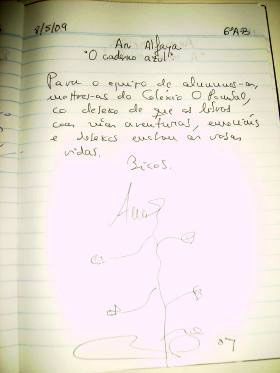 8/5/09 6ºA-B
An Alfaya
"O caderno azul"
Para o equipo de alumnos-as,
mestres-as do Colexio O Pombal,
co desexo de que os libros
coas súas aventuras, emocións
e desexos enchan as vosas
vidas.
Bicos.